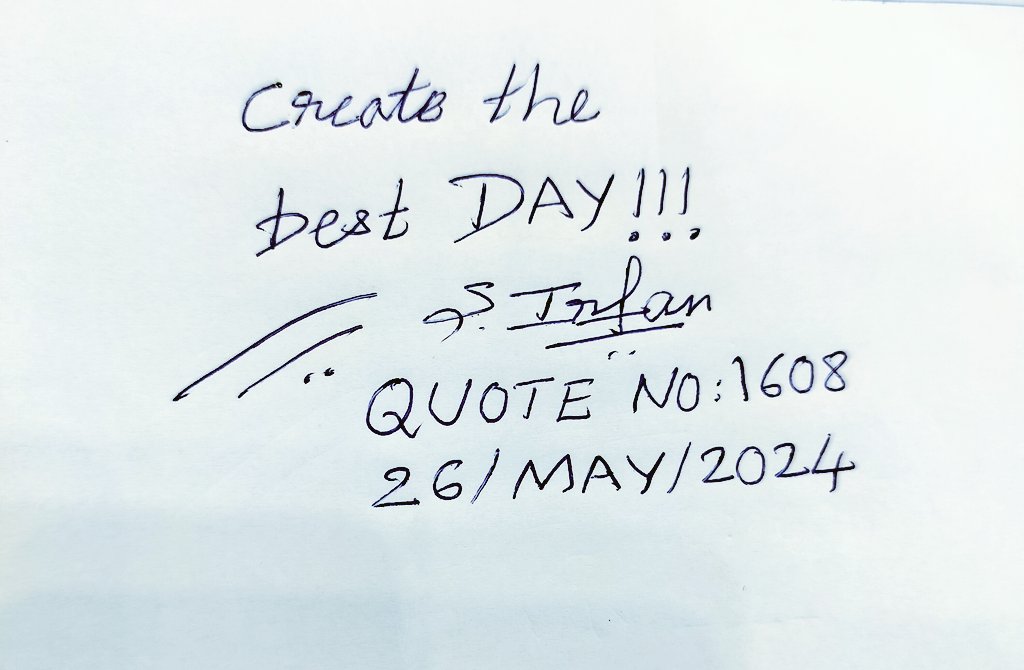 Create the
best DAY!!!
S. Irfan
QUOTE NO:1608
26/MAY/2024